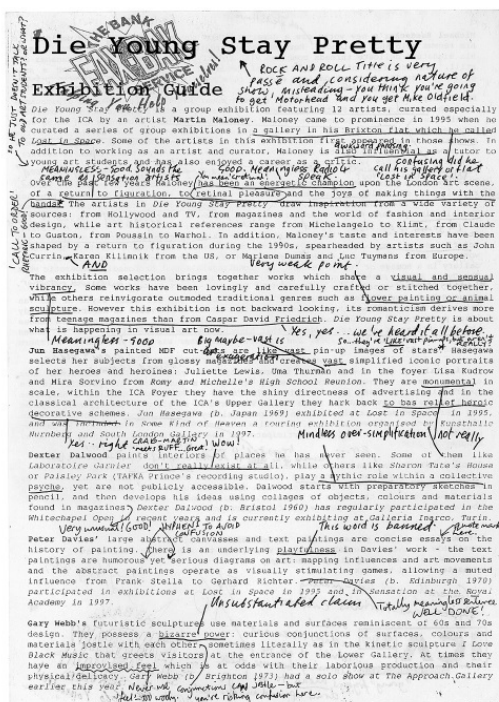 THE BANK
FAX-BAK
SERVICE
Die Young Stay Pretty
Exhibition Guide
ROCK AND ROLL Title is very
passé and considering nature of
show, misleading - you think you're going
to get Motorhead and you get Mike Oldfield.
Die Young Stay Pretty is a group exhibition featuring 12 artists, curated especially
for the ICA by an artist Martin Maloney. Maloney came to prominence in 1995 when he
curated a series of group exhibitions in a gallery in his Brixton flat which he called
Lost in Space. Some of the artists in this exhibition first appeared in those shows. In
addition to working as an artist and curator, Maloney is also influential as a tutor to
young art students and has also enjoyed a career as a critic.
awkward phrasing
confusing did he
call his gallery or flat
Lost in Space?
MEANINGLESS - Good. Sounds the
same as Sensation artists
GOOD. Meaningless
speak.
Over the past few years Maloney has been an energetic champion upon the London art scene,
of a return to figuration, to retinal pleasure and the joys of making things with the
hands. The artists in Die Young Stay Pretty draw inspiration from a wide variety of
sources: from Hollywood and TV, from magazines and the world of fashion and interior
design, while art historical references range from Michelangelo to Klimt, from Claude
to Guston, from Poussin to Warhol. In addition, Maloney's taste and interests have been
shaped by a return to figuration during the 1990s, spearheaded by artists such as John
Currin, Karen Kilimnik from the US, or Marlene Dumas and Luc Tuymans from Europe.
AND
Very weak point.
The exhibition selection brings together works which share a visual and sensual
vibrancy. Some works have been lovingly and carefully crafted or stitched together,
while others reinvigorate outmoded traditional genres such as flower painting or animal
sculpture. However this exhibition is not backward looking, its romanticism derives more
from teenage magazines than from Caspar David Friedrich. Die Young Stay Pretty is about
what is happening in visual art now.
Yes, yes... we've heard it all before.
Meaningless - GOOD
Big maybe - vast is
Jun Hasegawa's painted MDF cut-outs are like vast pin-up images of stars. Hasegawa
selects her subjects from glossy magazines and creates vast simplified iconic portraits
of her heroes and heroines: Juliette Lewis, Uma Thurman and in the foyer Lisa Kudrow
and Mira Sorvino from Romy and Michelle's High School Reunion. They are monumental in
scale, within the ICA Foyer they have the shiny directness of advertising and in the
classical architecture of the ICA's Upper Gallery they hark back to bas relief heroic
decorative schemes. Jun Hasegawa (b. Japan 1969) exhibited at Lost in Space in 1995,
and was included in Some Kind of Heaven a touring exhibition organised by Kunsthalle
Nurnberg and South London Gallery in 1997.
not really
Yes - right
WOW!
Mindless over-simplification
Dexter Dalwood paints interiors of places he has never seen. Some of them like
Laboratoire Garnier don't really exist at all, while others like Sharon Tate's House
or Paisley Park (TAFKA Prince's recording studio), play a mythic role within a collective
psyche, yet are not publicly accessible. Dalwood starts with preparatory sketches in
pencil, and then develops his ideas using collages of objects, colours and materials
found in magazines. Dexter Dalwood (b. Bristol 1960) has regularly participated in the
Whitechapel Open in recent years and is currently exhibiting at Galleria Inarco, Turin.
Very unusual! GOOD!
HYPHEN! TO AVOID
CONFUSION
This word is banned
Peter Davies' large canvasses and text paintings are concise essays on the
history of painting. There is an underlying playfulness in Davies' work - the text
paintings are humorous yet serious diagrams on art: mapping influences and art movements
and the abstract paintings operate as visually stimulating games, allowing a muted
influence from Frank Stella to Gerhard Richter. Peter Davies (b. Edinburgh 1970)
participated in exhibitions at Lost in Space in 1995 and in Sensation at the Royal
Academy in 1997.
Unsubstantiated claim
Totally meaningless sentence
WELL DONE!
Gary Webb's futuristic sculptures use materials and surfaces reminiscent of 60s and 70s
design. They possess a bizarre power: curious conjunctions of surfaces, colours and
materials jostle with each other, sometimes literally as in the kinetic sculpture I Love
Black Music that greets visitors at the entrance of the Lower Gallery. At times they
have an improvised feel which is at odds with their laborious production and their
physical delicacy. Gary Webb (b. Brighton 1973) had a solo show at The Approach Gallery
earlier this year.
Never use conjunctions CAN jostle - but
you're risking confusion here.